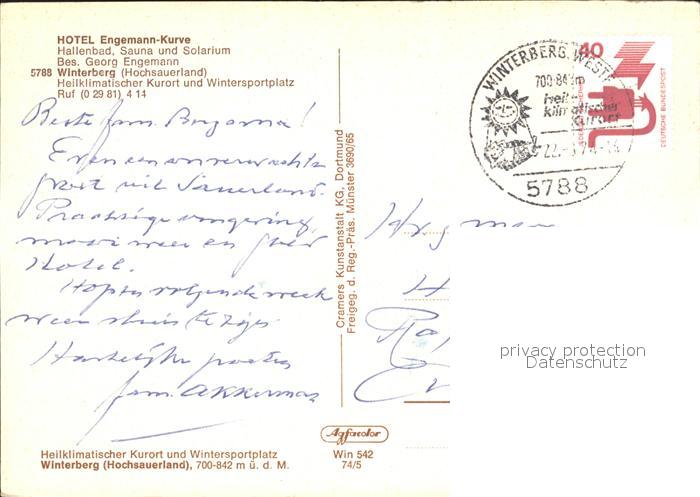 HOTEL Engemann-Kurve
Hallenbad, Sauna und Solarium
Bes. Georg Engemann
5788 Winterberg (Hochsauerland)
Heilklimatischer Kurort und Wintersportplatz
Ruf (0 29 81) 4 14
Beste fam.
Even een onverwachte
groet uit Sauerland.
Prachtige omgeving,
mooi weer en
Hotel.
Hopen volgende week
weer thuis te zijn
Hartelijke groeten
fam. Akkerman
Heilklimatischer Kurort und Wintersportplatz
Winterberg (Hochsauerland), 700-842 m ü. d. M.
Cramers Kunstanstalt KG, Dortmund
Freigeg. d. Reg.-Präs. Münster 3690/65
Agfacolor
Win 542
74/5
WINTERBERG, WESTF
700-842 m
Heil-
klimatischer
Kurort
5788
40
DEUTSCHE BUNDESPOST
privacy protection
Datenschutz